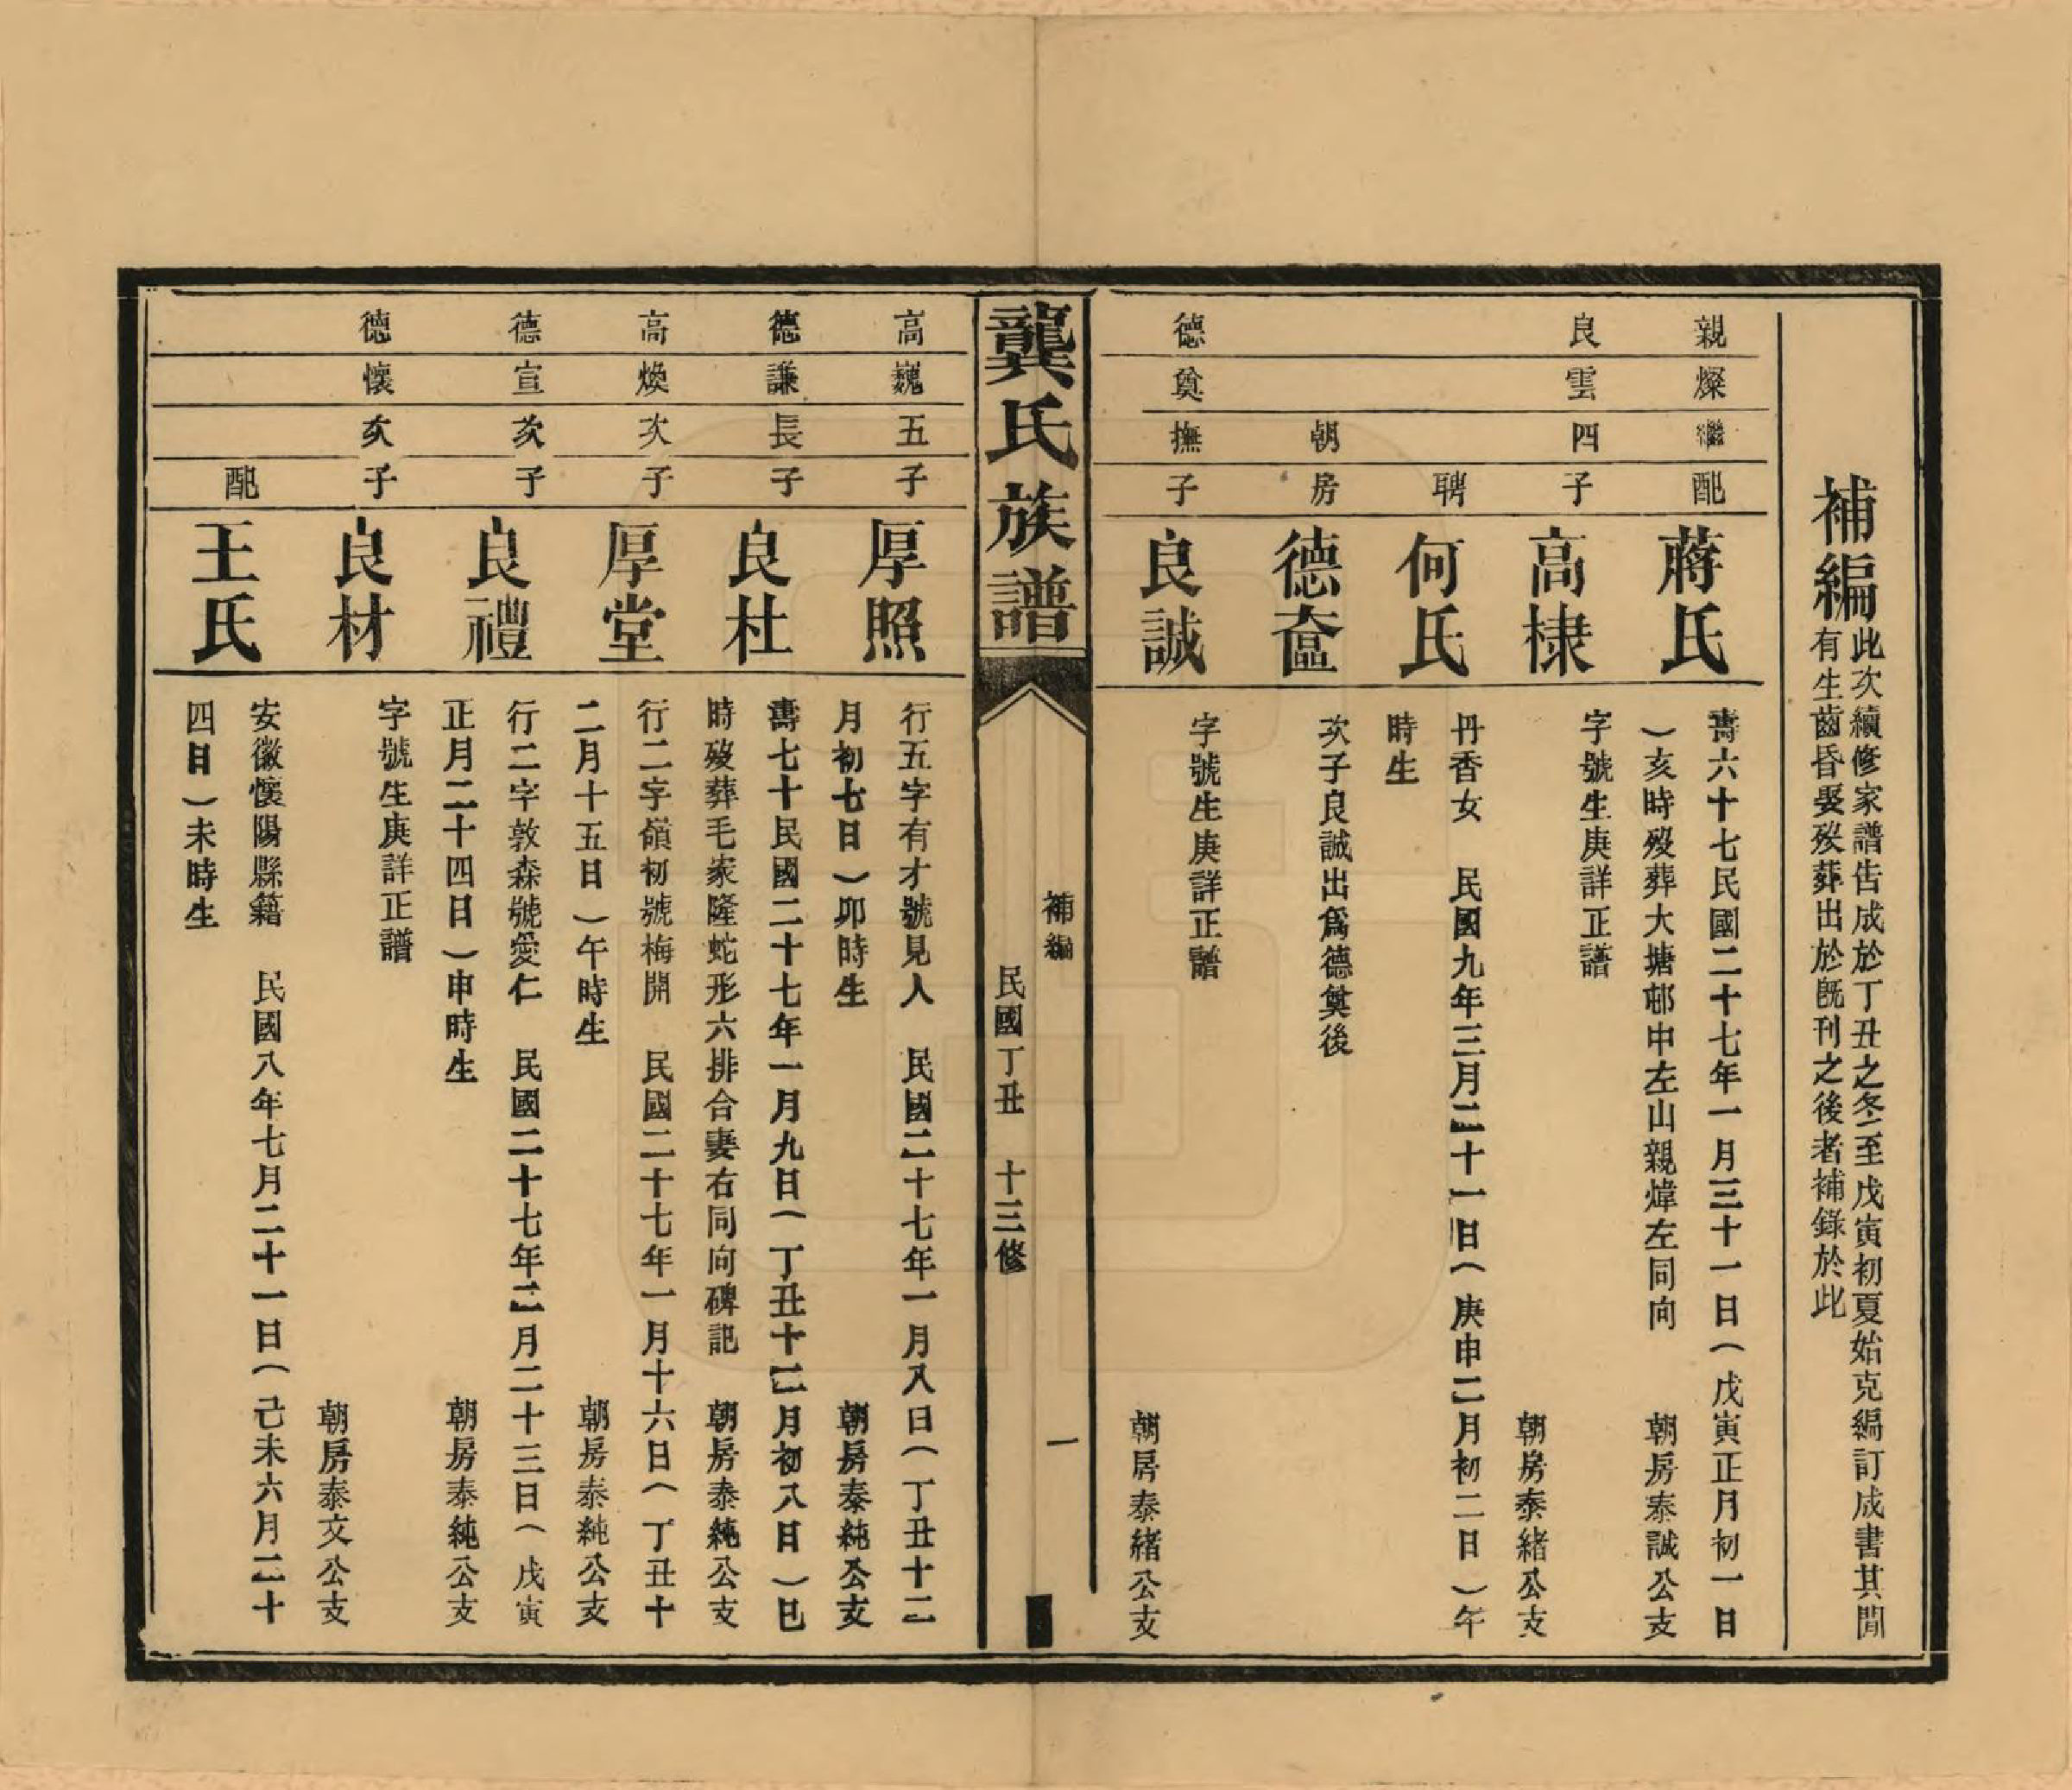 補編
此次續修家譜告成於丁丑之冬至戊寅初夏始克編訂成書其間
有生齒昏娶歿葬出於旣刊之後者補錄於此
親燦繼配
蔣氏
壽六十七民國二十七年一月三十一日(戊寅正月初一日
)亥時歿葬大塘邨中左山親煒左同向
朝房泰誠公支
良雲四子
高棣
字號生庚詳正譜
朝房泰緒公支
聘
何氏
丹香女 民國九年三月二十一日(庚申二月初二日)午
時生
朝房
德奩
次子良誠出爲德奠後
德奠撫子
良誠
字號生庚詳正譜
朝房泰緒公支
龔氏族譜
補編
一
民國丁丑 十三修
高巍五子
厚照
行五字有才號見人 民國二十七年一月八日(丁丑十二
月初七日)卯時生
朝房泰純公支
德謙長子
良杜
壽七十民國二十七年一月九日(丁丑十二月初八日)巳
時歿葬毛家隆蛇形六排合妻右同向碑記
朝房泰純公支
高煥次子
厚堂
行二字嶺初號梅開 民國二十七年一月十六日(丁丑十
二月十五日)午時生
朝房泰純公支
德宣次子
良禮
行二字敦森號愛仁 民國二十七年二月二十三日(戊寅
正月二十四日)申時生
朝房泰純公支
德懷次子
良材
字號生庚詳正譜
朝房泰文公支
配
王氏
安徽懷陽縣籍 民國八年七月二十一日(己未六月二十
四日)未時生